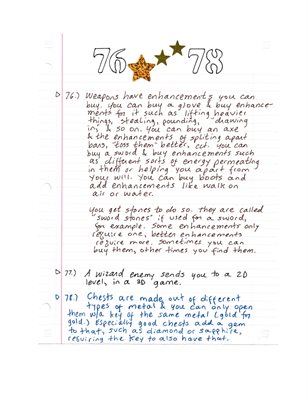 76 78
76.) Weapons have enhancements you can
buy. You can buy a glove & buy enhance-
ments for it such as lifting heavier
things, stealing, pounding, clawing
in, & so on. You can buy an axe
& the enhancements of splitting apart
bars, toss them better, ect. You can
buy a sword & buy enhancements such
as different sorts of energy permeating
in them or helping you apart from
your will. You can buy boots and
add enhancements like walk on
air or water.
You get stones to do so. They are called
"sword stones" if used for a sword,
for example. Some enhancements only
require one, better enhancements
require more. Sometimes you can
buy them, other times you find them.
77.) A wizard enemy sends you to a 2D
level, in a 3D game.
78.) Chests are made out of different
types of metal & you can only open
them w/a key of the same metal (gold for
gold.) Especially good chests add a gem
to that, such as diamond or sapphire,
requiring the key to also have that.